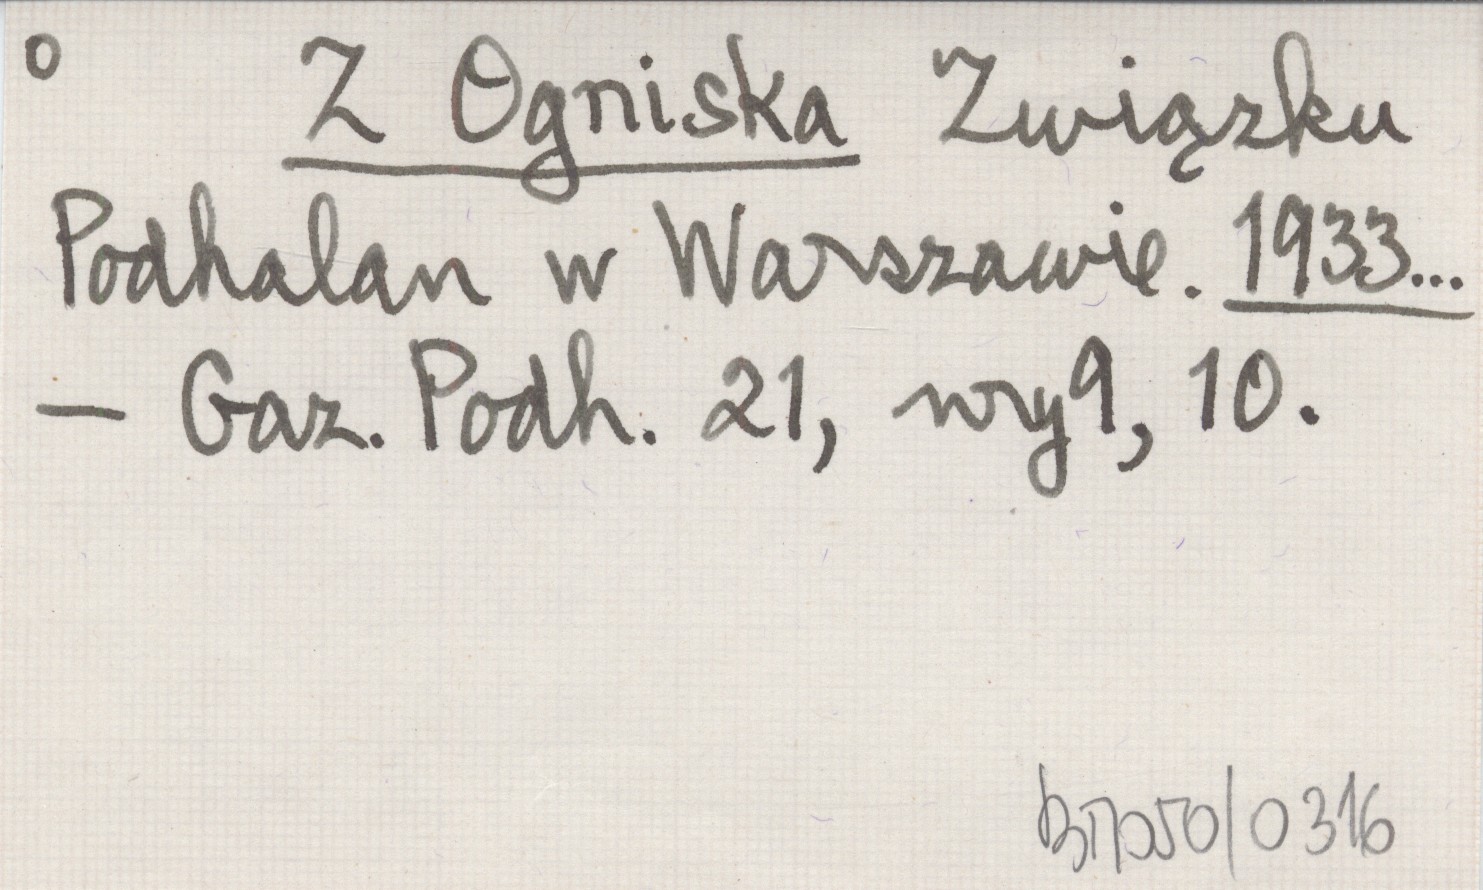 o Z Ogniska Związku
Podhalan w Warszawie. 1933...
— Gaz. Podh. 21, nry 9, 10.
0316